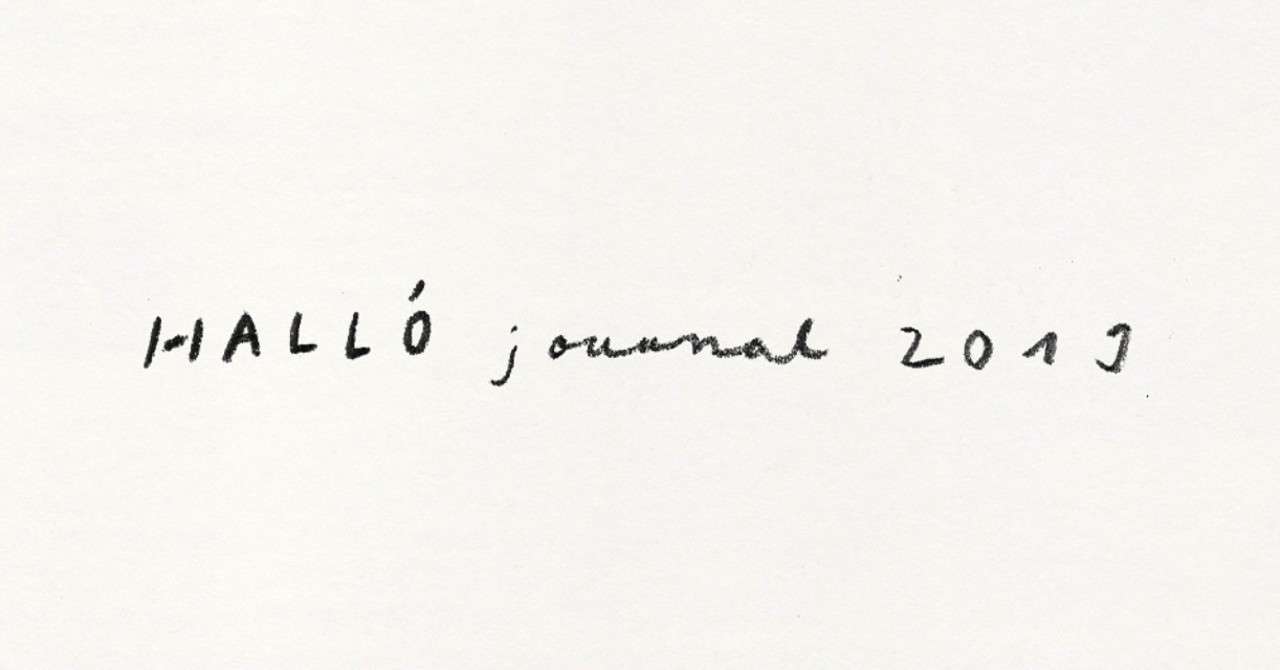 HALLÓ journal 2019